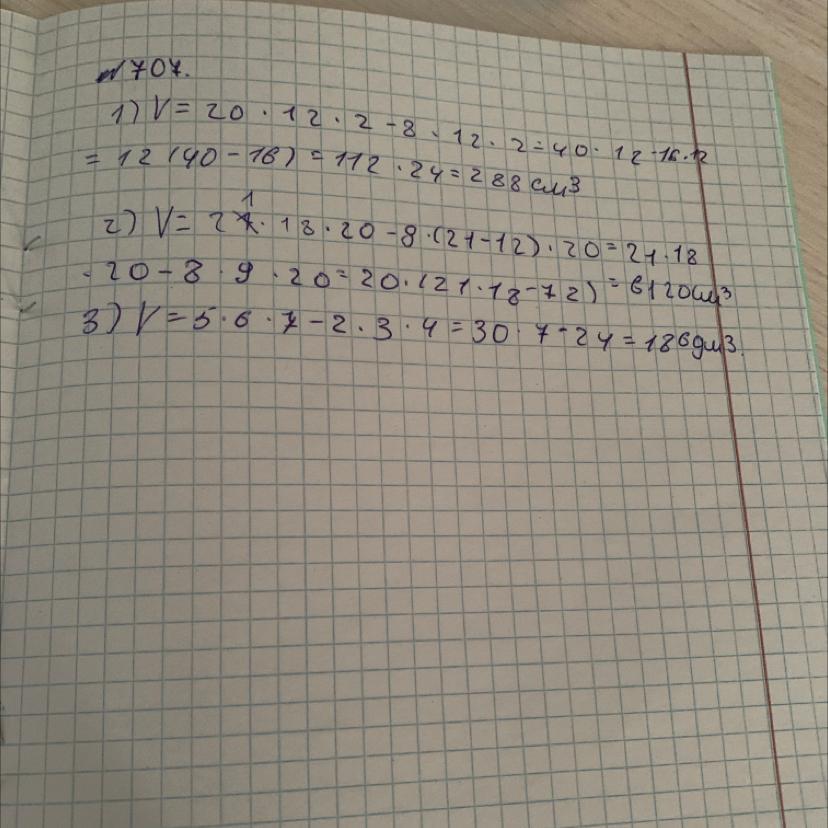 №707.
1) V = 20 · 12 · 2 - 8 · 12 · 2 = 40 · 12 - 16 · 12
= 12 (40 - 16) = 112 · 24 = 288 см3
2) V = 21 · 18 · 20 - 8 · (21 - 12) · 20 = 21 · 18
· 20 - 8 · 9 · 20 = 20 · (21 · 18 - 72) = 6120 см3
3) V = 5 · 6 · 7 - 2 · 3 · 4 = 30 · 7 - 24 = 186 дм3.